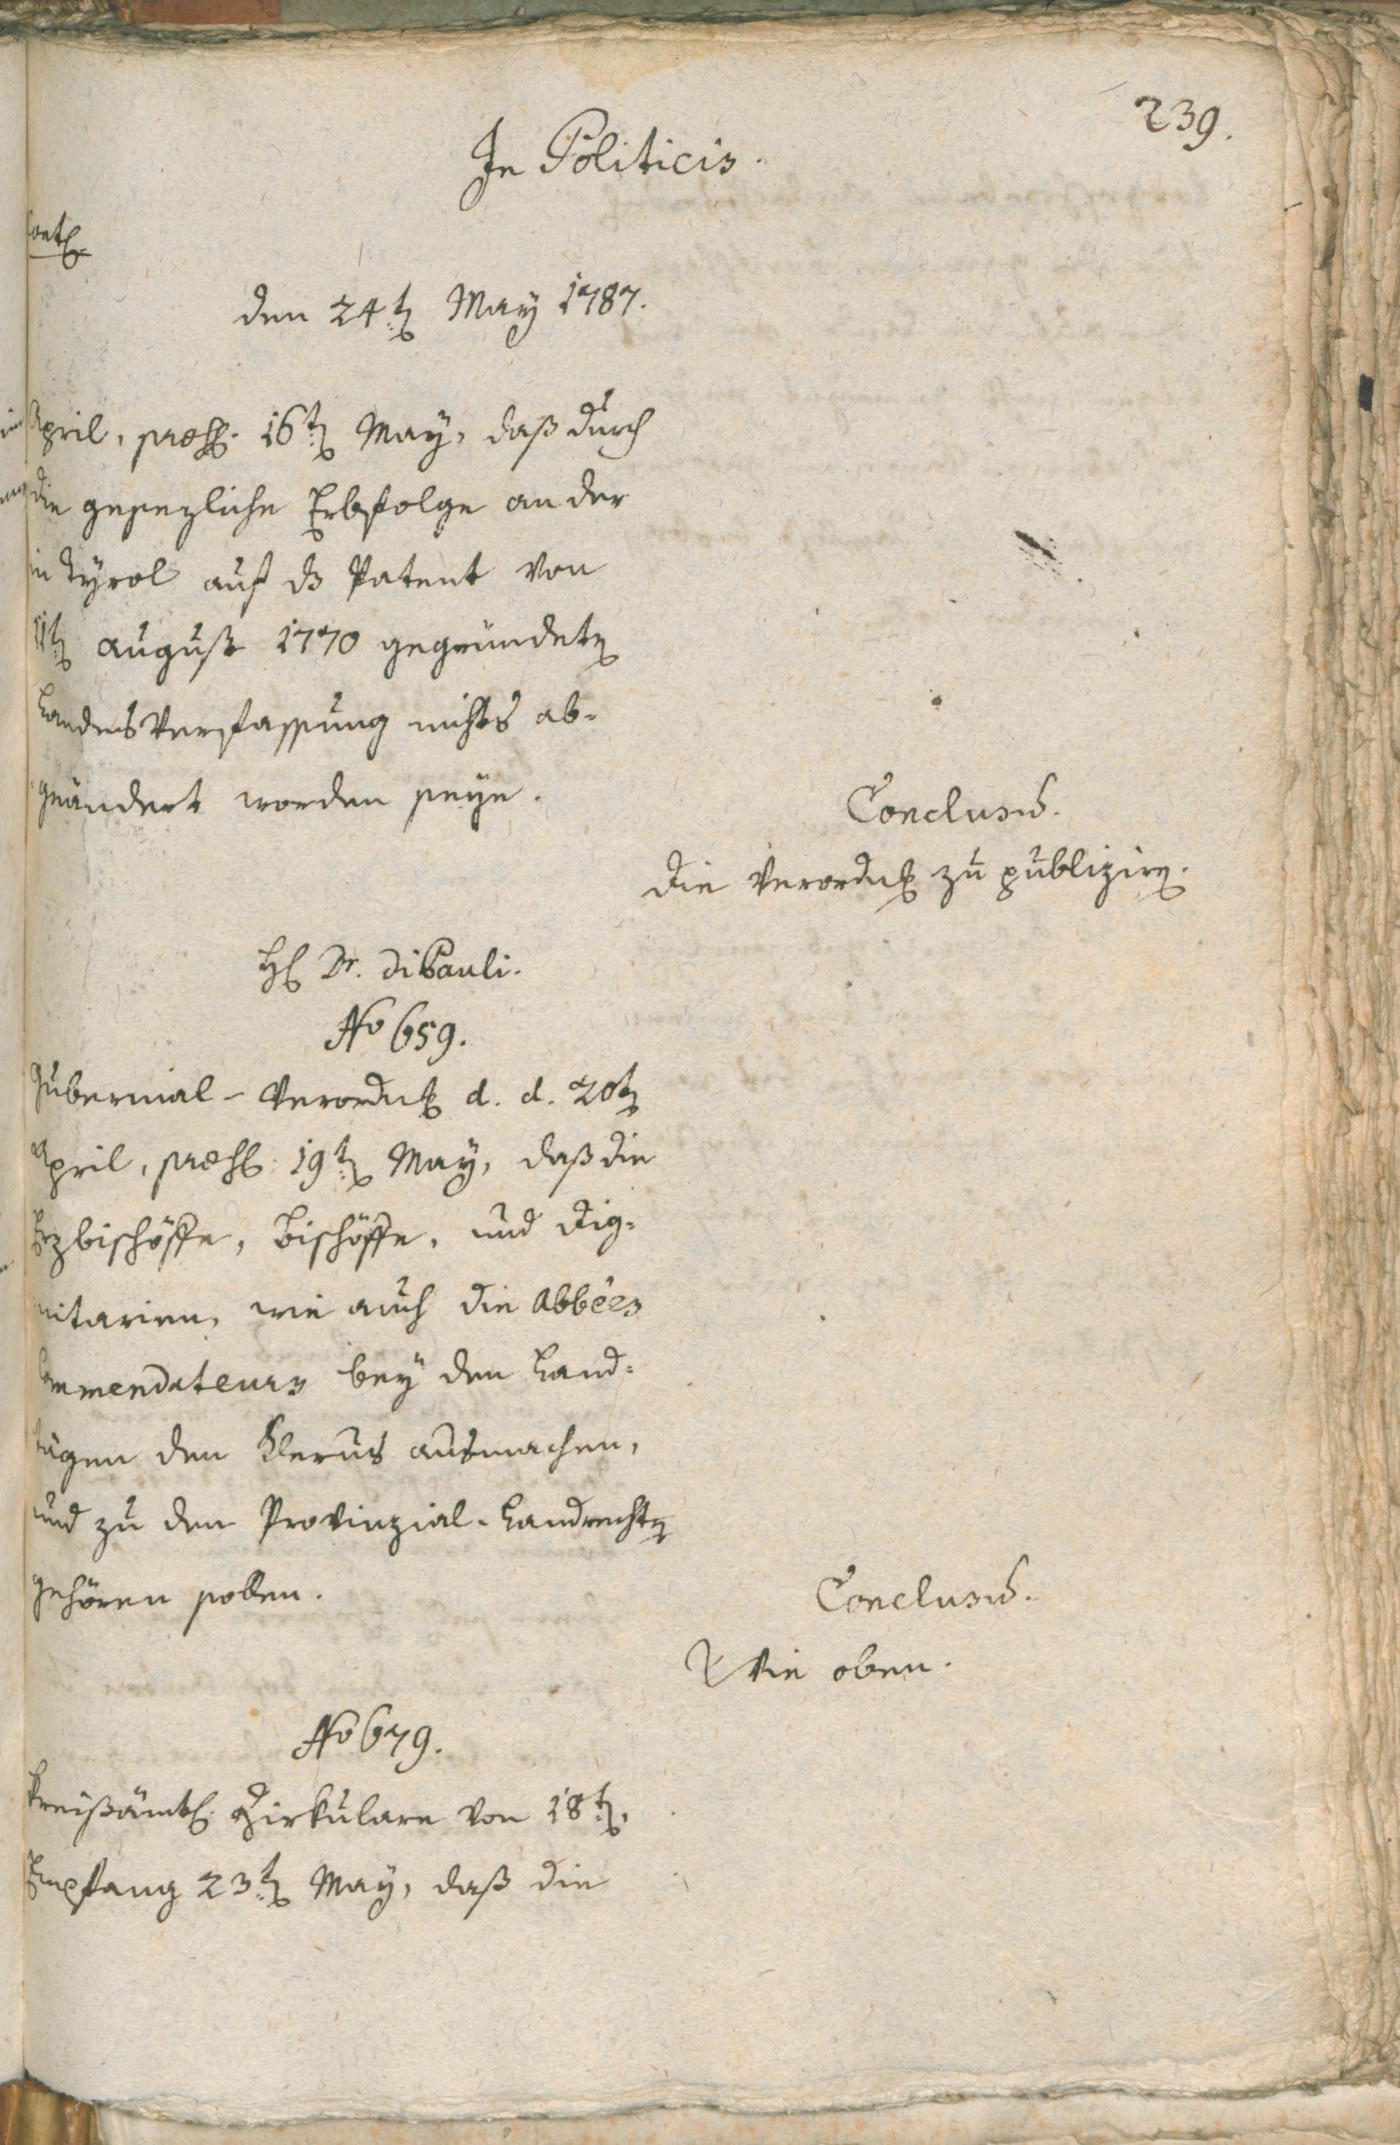 239.
In Politicis.
den 24t. May 1787.
April, praes. 16t. May, daß durch
die gesezliche Erbfolge an der
in Tÿrol auf ds Patent von
11t. august 1770 gegründete
Landesverfassung nichts ab-
geändert worden seye.
Conclusū.
die Verordng zu publiziren.
H. Dr. di Pauli.
No 659.
Gubernial-Verordng d. d. 20t
April, praes. 19t. May, daß die
Erzbischöffe, Bischöffe, und Dig-
nitarien, wie auch die Abbées
Commendateurs beÿ den Land-
tägen den Klerus ausmachen,
und zu den Provinzial-Landrechten
gehören sollen.
Conclusū.
Wie oben.
No 679.
Kreisämtl. Zirkulare von 18t.,
Empfang 23t. May, daß die